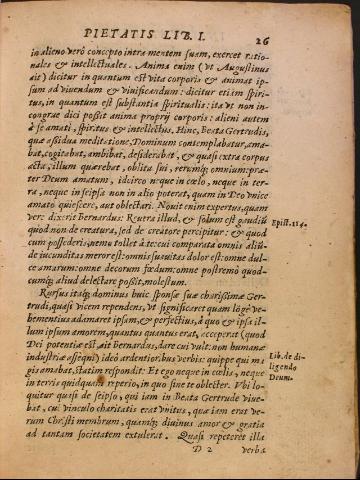 PIETATIS LIB. I. 26
in alieno verò concepto intra mentem suam, exercet ratio-
nales et intellectuales. Anima enim (vt Augustinus
ait) dicitur in quantum est vita corporis & animat ip-
sum ad viuendum & viuificandum: dicitur etiam spiri-
tus, in quantum est substantia spiritualis: ita vt non in-
congruè dici possit anima proprij corporis: alieni autem
à se amati, spiritus & intellectus. Hinc, Beata Gertrudis,
quæ assidua meditatione, Dominum contemplabatur, ama-
bat, cogitabat, ambibat, desiderabat, & quasi extra corpus
acta, illum quærebat, oblita sui, rerumq; omnium: præ-
ter Deum amatum, idcirco neque in cœlo, neque in ter-
ra, neque in seipsa non in alio poterat, quam in Deo vnicè
amato quiescere, aut oblectari. Nouit enim expertus, quam
verè dixerit Bernardus: Reuera illud, & solum est gaudiũ
quod non de creatura, sed de creatore percipitur: & quod
cum possederis, nemo tollet à te: cui comparata omnis aliũ-
de iucunditas mœror est: omnis suauitas dolor est: omne dul-
ce amarum: omne decorum fœdum: omne postremò quod-
cumq; aliud delectare possit, molestum.
Epist. 114.
Rursus itaq; dominus huic sponsæ suæ charissimæ Ger-
trudi, quasi vicem rependens, vt significaret quam longè ve-
hementius adamaret ipsam, & perfectius, à quo & ipsa il-
lum ipsum amorem, quantus quantus erat, acceperat (quod
Dei potentiæ est, ait Bernardus, dare cui vult: non humanæ
industriæ assequi) ideò ardentioribus verbis: quippe qui ma-
gis amabat, statim respondit: Et ego neque in cœlis, neque
in terris quidquam reperio, in quo sine te oblecter. Vbi lo-
quitur quasi de seipso, qui iam in Beata Gertrude viue-
bat, cui vinculo charitatis erat vnitus, quæ iam erat ve-
rum Christi membrum, quamq; diuinus amor & gratia
ad tantam societatem extulerat. Quasi repeteret illa
Lib. de di-
ligendo
Deum.
D 2 verba